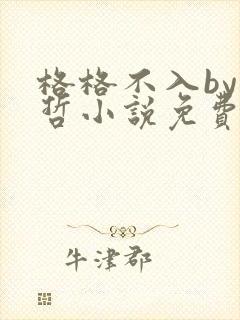 格格不入by
哲小說免費
牛津郡